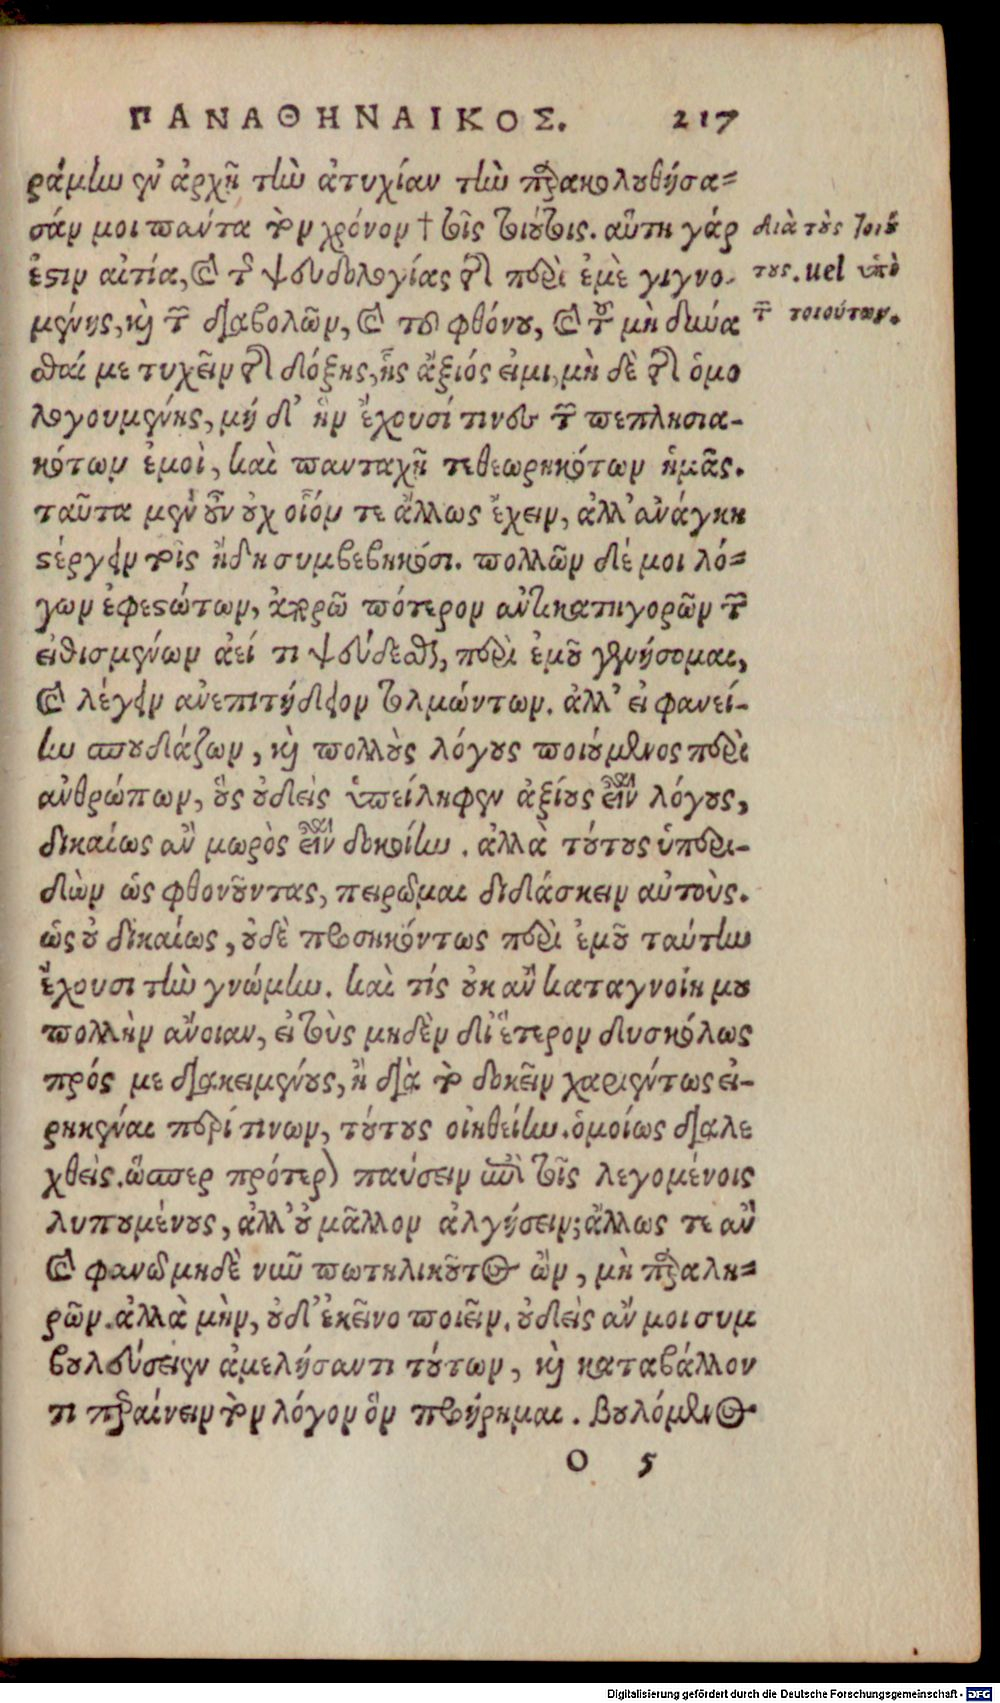 ΠΑΝΑΘΗΝΑΙΚΟΣ. 217
ράμην ἐν ἀρχῇ τὴν ἀτυχίαν τὴν παρακολουθήσα-
σάν μοι πάντα τὸν χρόνον † τοῖς τοιούτοις. αὕτη γάρ
ἐστιν αἰτία, καὶ τῆς ψευδολογίας τῆς περὶ ἐμὲ γιγνο-
μένης, καὶ τῶν διαβολῶν, καὶ τοῦ φθόνου, καὶ τοῦ μὴ δύνα
σθαί με τυχεῖν τῆς δόξης, ἧς ἄξιός εἰμι, μὴ δὲ τῆς ὁμο
λογουμένης, μή δ' ἣν ἔχουσί τινες τῶν πεπλησια-
κότων ἐμοὶ, καὶ πανταχῇ τεθεωρηκότων ἡμᾶς.
ταῦτα μὲν οὖν οὐχ οἷόν τε ἄλλως ἔχειν, ἀλλ' ἀνάγκη
στέργειν τοῖς ἤδη συμβεβηκόσι. πολλῶν δέ μοι λό-
γων ἐφεστώτων, ἀπορῶ πότερον ἀντικατηγορῶν τῶν
εἰθισμένων ἀεί τι ψεύδεσθαι, περὶ ἐμοῦ γενήσομαι,
καὶ λέγειν ἀνεπιτήδειον τολμώντων. ἀλλ' εἰ φανεί-
ην σπουδάζων, καὶ πολλοὺς λόγους ποιούμενος περὶ
ἀνθρώπων, οὓς οὐδεὶς ὑπείληφεν ἀξίους εἶναι λόγους,
δικαίως ἂν μωρὸς εἶναι δοκοίην. ἀλλὰ τούτους ὑπερι-
δὼν ὡς φθονοῦντας, πειρῶμαι διδάσκειν αὐτοὺς.
ὡς οὐ δικαίως, οὐδὲ προσηκόντως περὶ ἐμοῦ ταύτην
ἔχουσι τὴν γνώμην. καὶ τίς οὐκ ἂν καταγνοίη μου
πολλὴν ἄνοιαν, εἰ τοὺς μηδὲν δι' ἕτερον δυσκόλως
πρός με διακειμένους, ἢ διὰ τὸ δοκεῖν χαριέντως εἰ-
ρηκέναι περί τινων, τούτους οἰηθείην. ὁμοίως διαλε
χθεὶς. ὥσπερ πρότερον παύσειν ἐπὶ τοῖς λεγομένοις
λυπουμένους, ἀλλ' οὐ μᾶλλον ἀλγήσειν; ἄλλως τε ἂν
καὶ φανῶ μηδὲ νῦν πω τηλικοῦτος ὢν, μὴ παραλη-
ρῶν. ἀλλὰ μὴν, οὐδ' ἐκεῖνο ποιεῖν. οὐδεὶς ἄν μοι συμ
βουλεύσειεν ἀμελήσαντι τούτων, καὶ καταβάλλον
τι περαίνειν τὸν λόγον ὃν προῄρημαι. βουλόμενος
O 5
διὰ τοὺς τοιού
τους. uel ὑπὸ
τῶν τοιούτων.
Digitalisierung gefördert durch die Deutsche Forschungsgemeinschaft - DFG